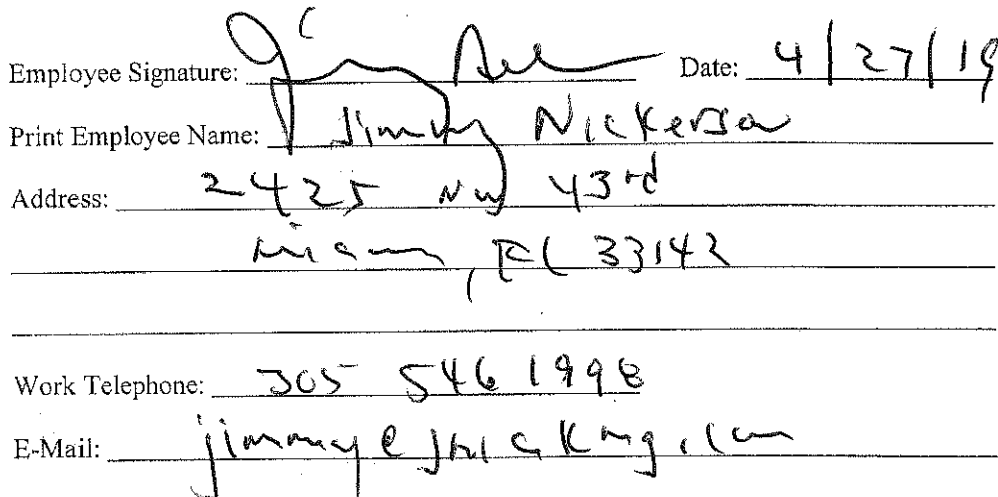 Employee Signature: Date: 4/27/19
Print Employee Name: Jimmy Nickerson
Address: 2425 NW 43rd
Miami, Fl 33142
Work Telephone: 305 546 1998
E-Mail: